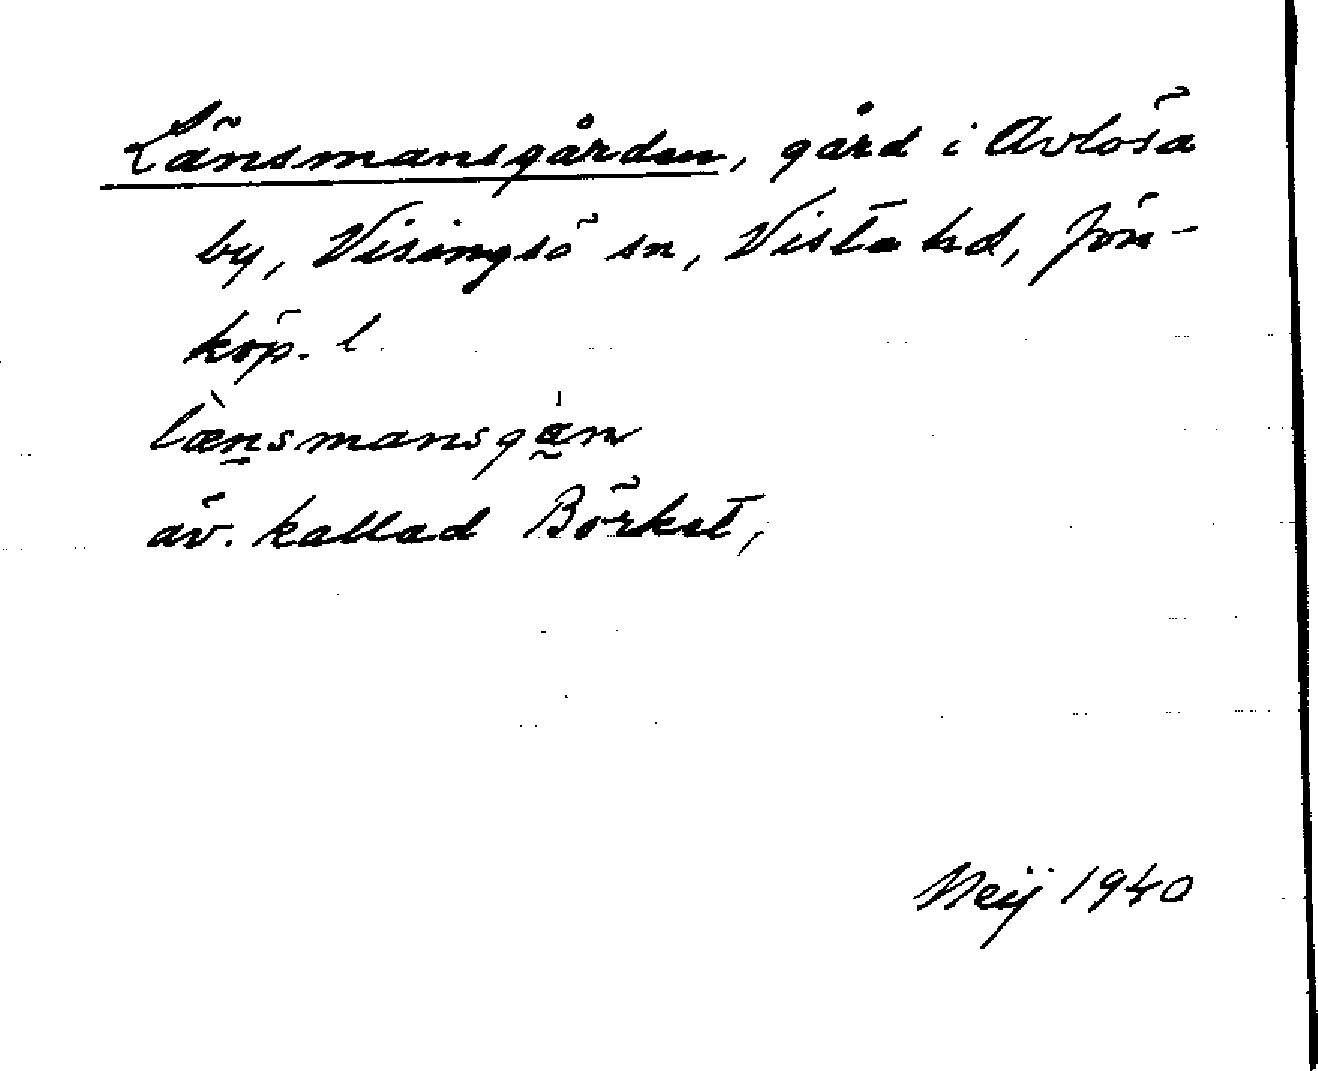 Länsmansgården, gård i Avlösa
by, Visingsö sn, Vista hd, Jön-
köp. l.
lǽnsmansgán
äv. kallad Börket,
Neij 1940